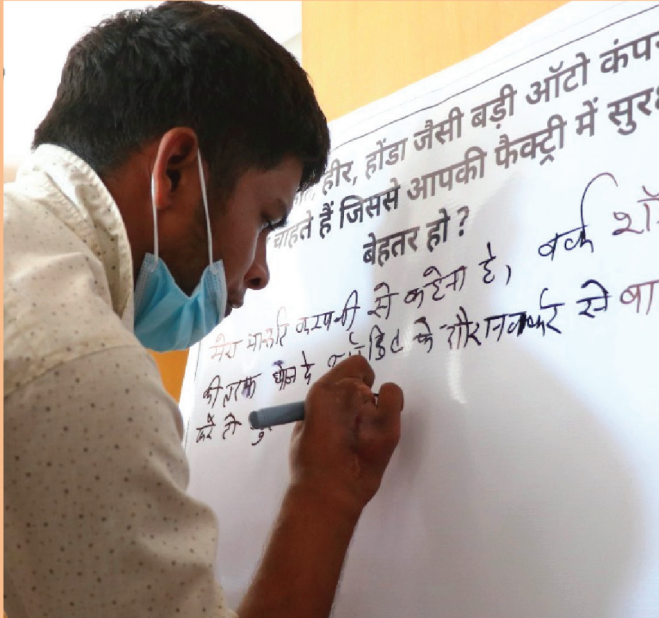 हीर, होंडा जैसी बड़ी ऑटो कंप
चाहते हैं जिससे आपकी फैक्ट्री में सुर
बेहतर हो ?
मेरा कम्पनी से कहेना हे, वर्क शॉ
की तरफ दे के दौरान वर्कर से बा
करे तो